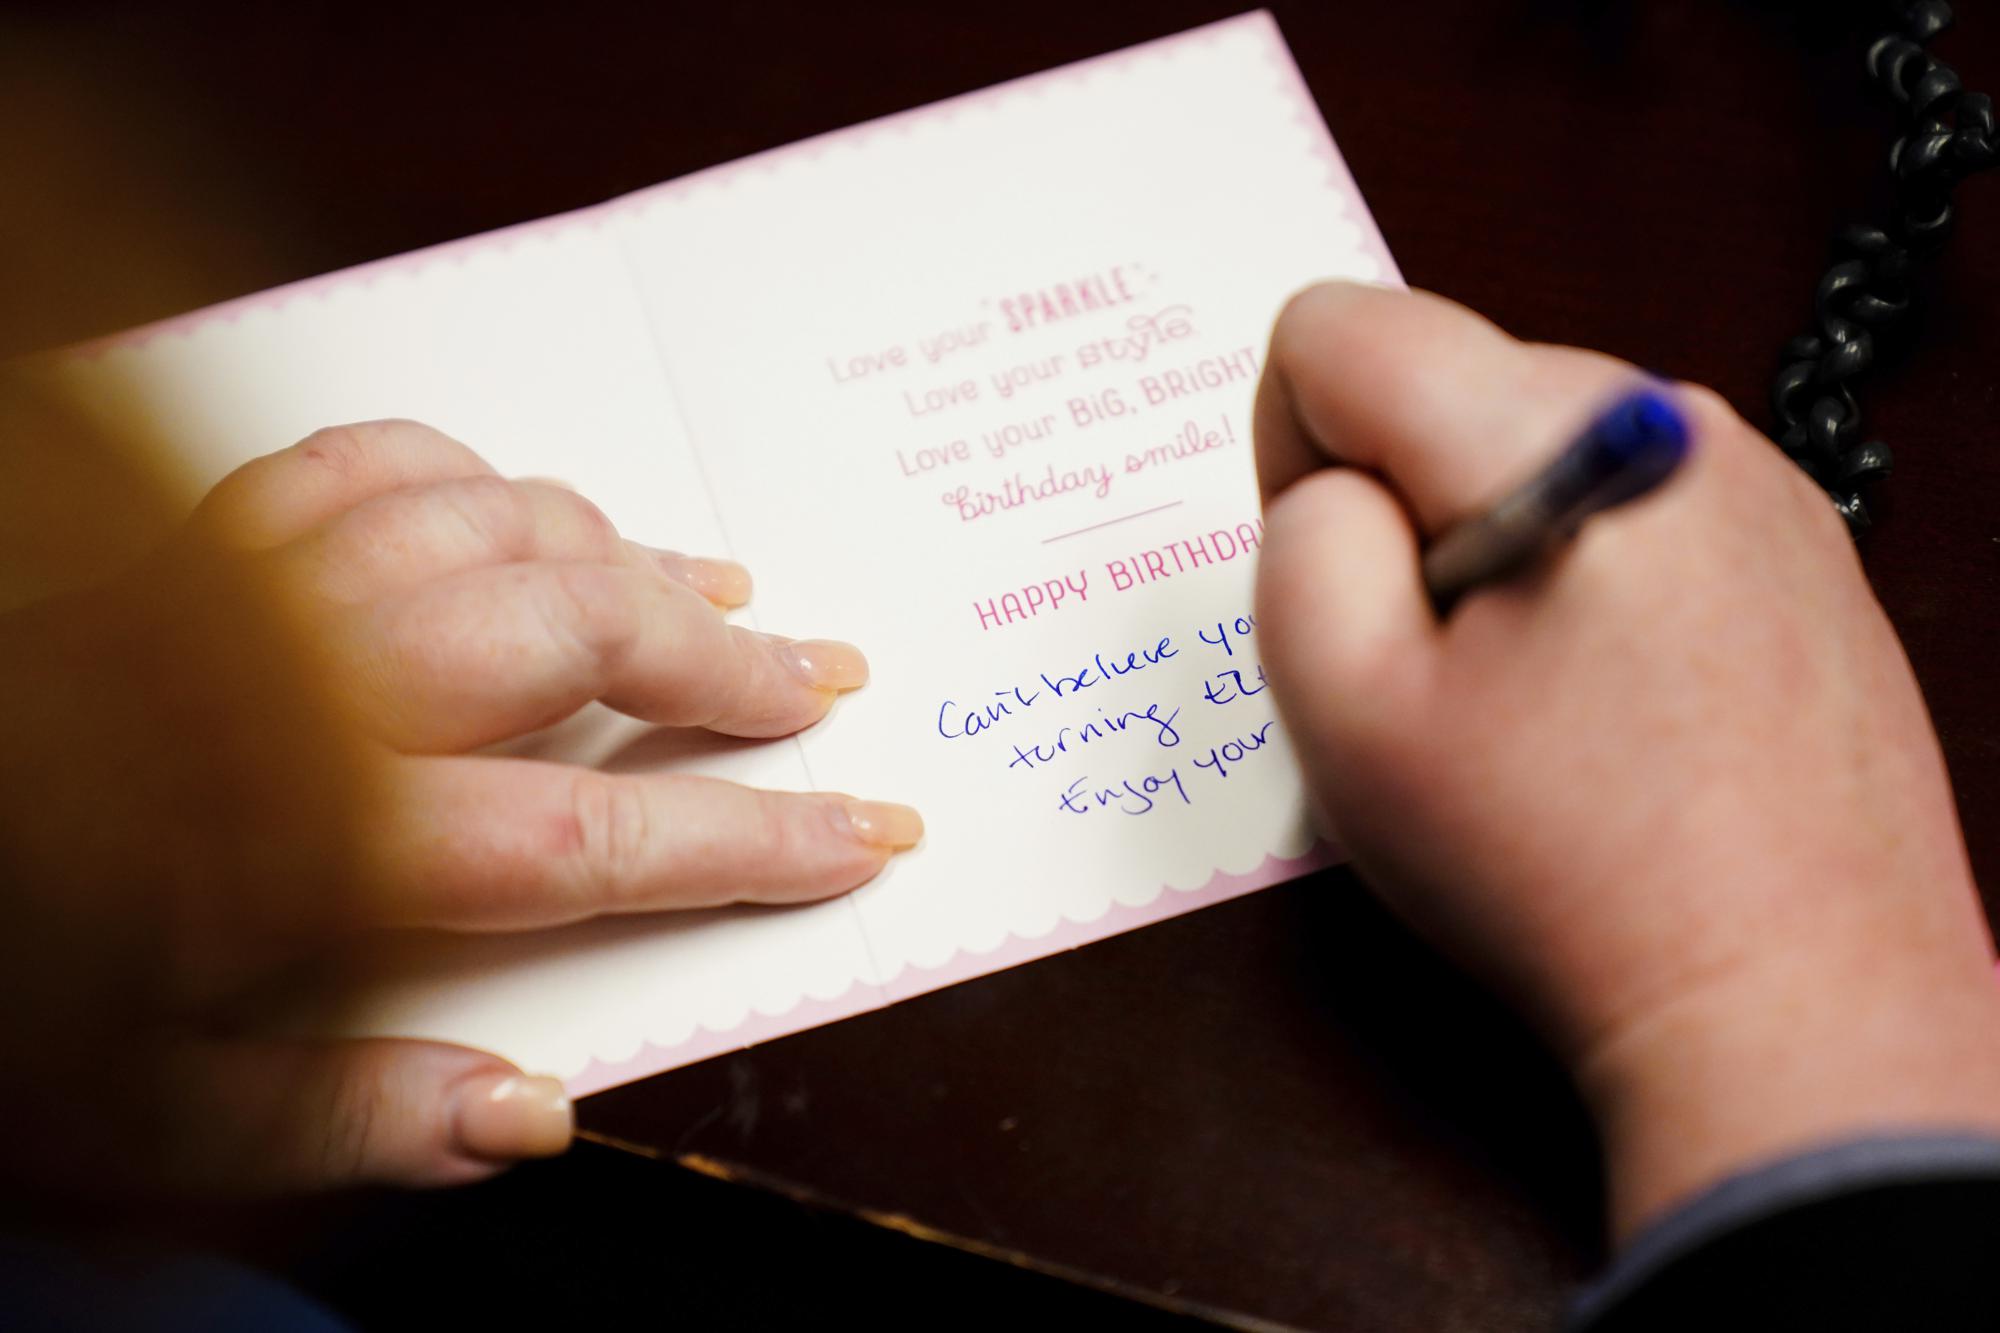 Love your SPARKLE
Love your style
Love your BiG, BRiGHT
birthday smile!
HAPPY BIRTHDAY
Can't believe you
turning
Enjoy your